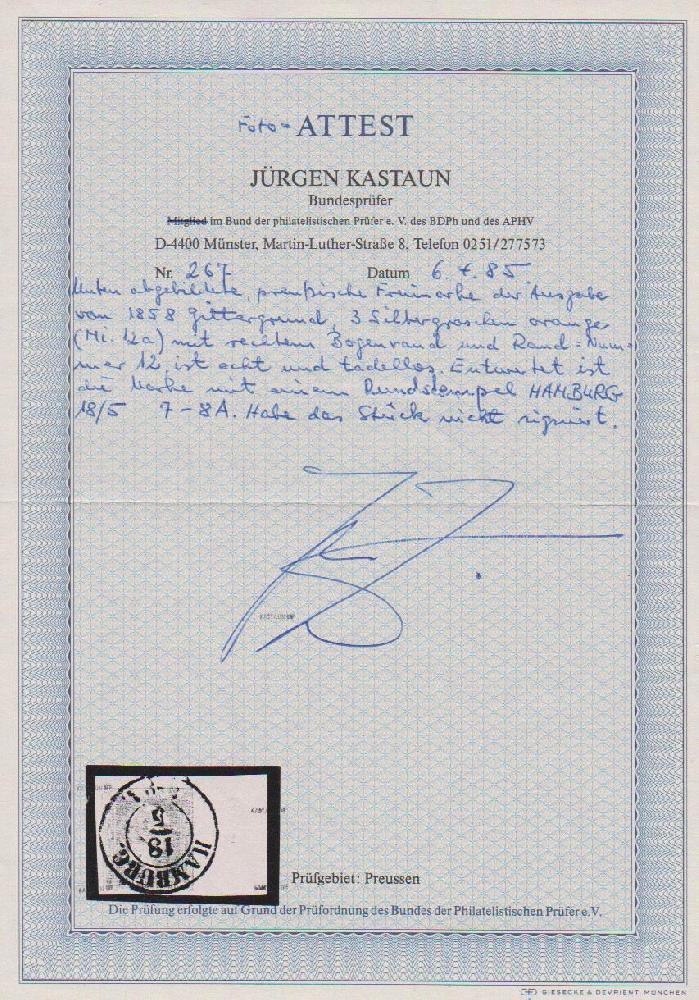 Foto=ATTEST
JÜRGEN KASTAUN
Bundesprüfer
Mitglied im Bund der philatelistischen Prüfer e. V. des BDPh und des APHV
D-4400 Münster, Martin-Luther-Straße 8, Telefon 0251/277573
Nr. 267 Datum 6. 4. 85
Unten abgebildete, preußische Freimarke der Ausgabe
von 1858 gittergrund, 3 Silbergroschen orange
(Mi. 12a) mit rechtem Bogenrand und Rand=Num=
mer 12, ist echt und tadellos. Entwertet ist
die Marke mit einem Rundstempel HAMBURG
18/5 7-8A. Habe das Stück nicht signiert.
HAMBURG.
18
5
Prüfgebiet: Preussen
Die Prüfung erfolgte auf Grund der Prüfordnung des Bundes der Philatelistischen Prüfer e.V.
GIESECKE & DEVRIENT MÜNCHEN